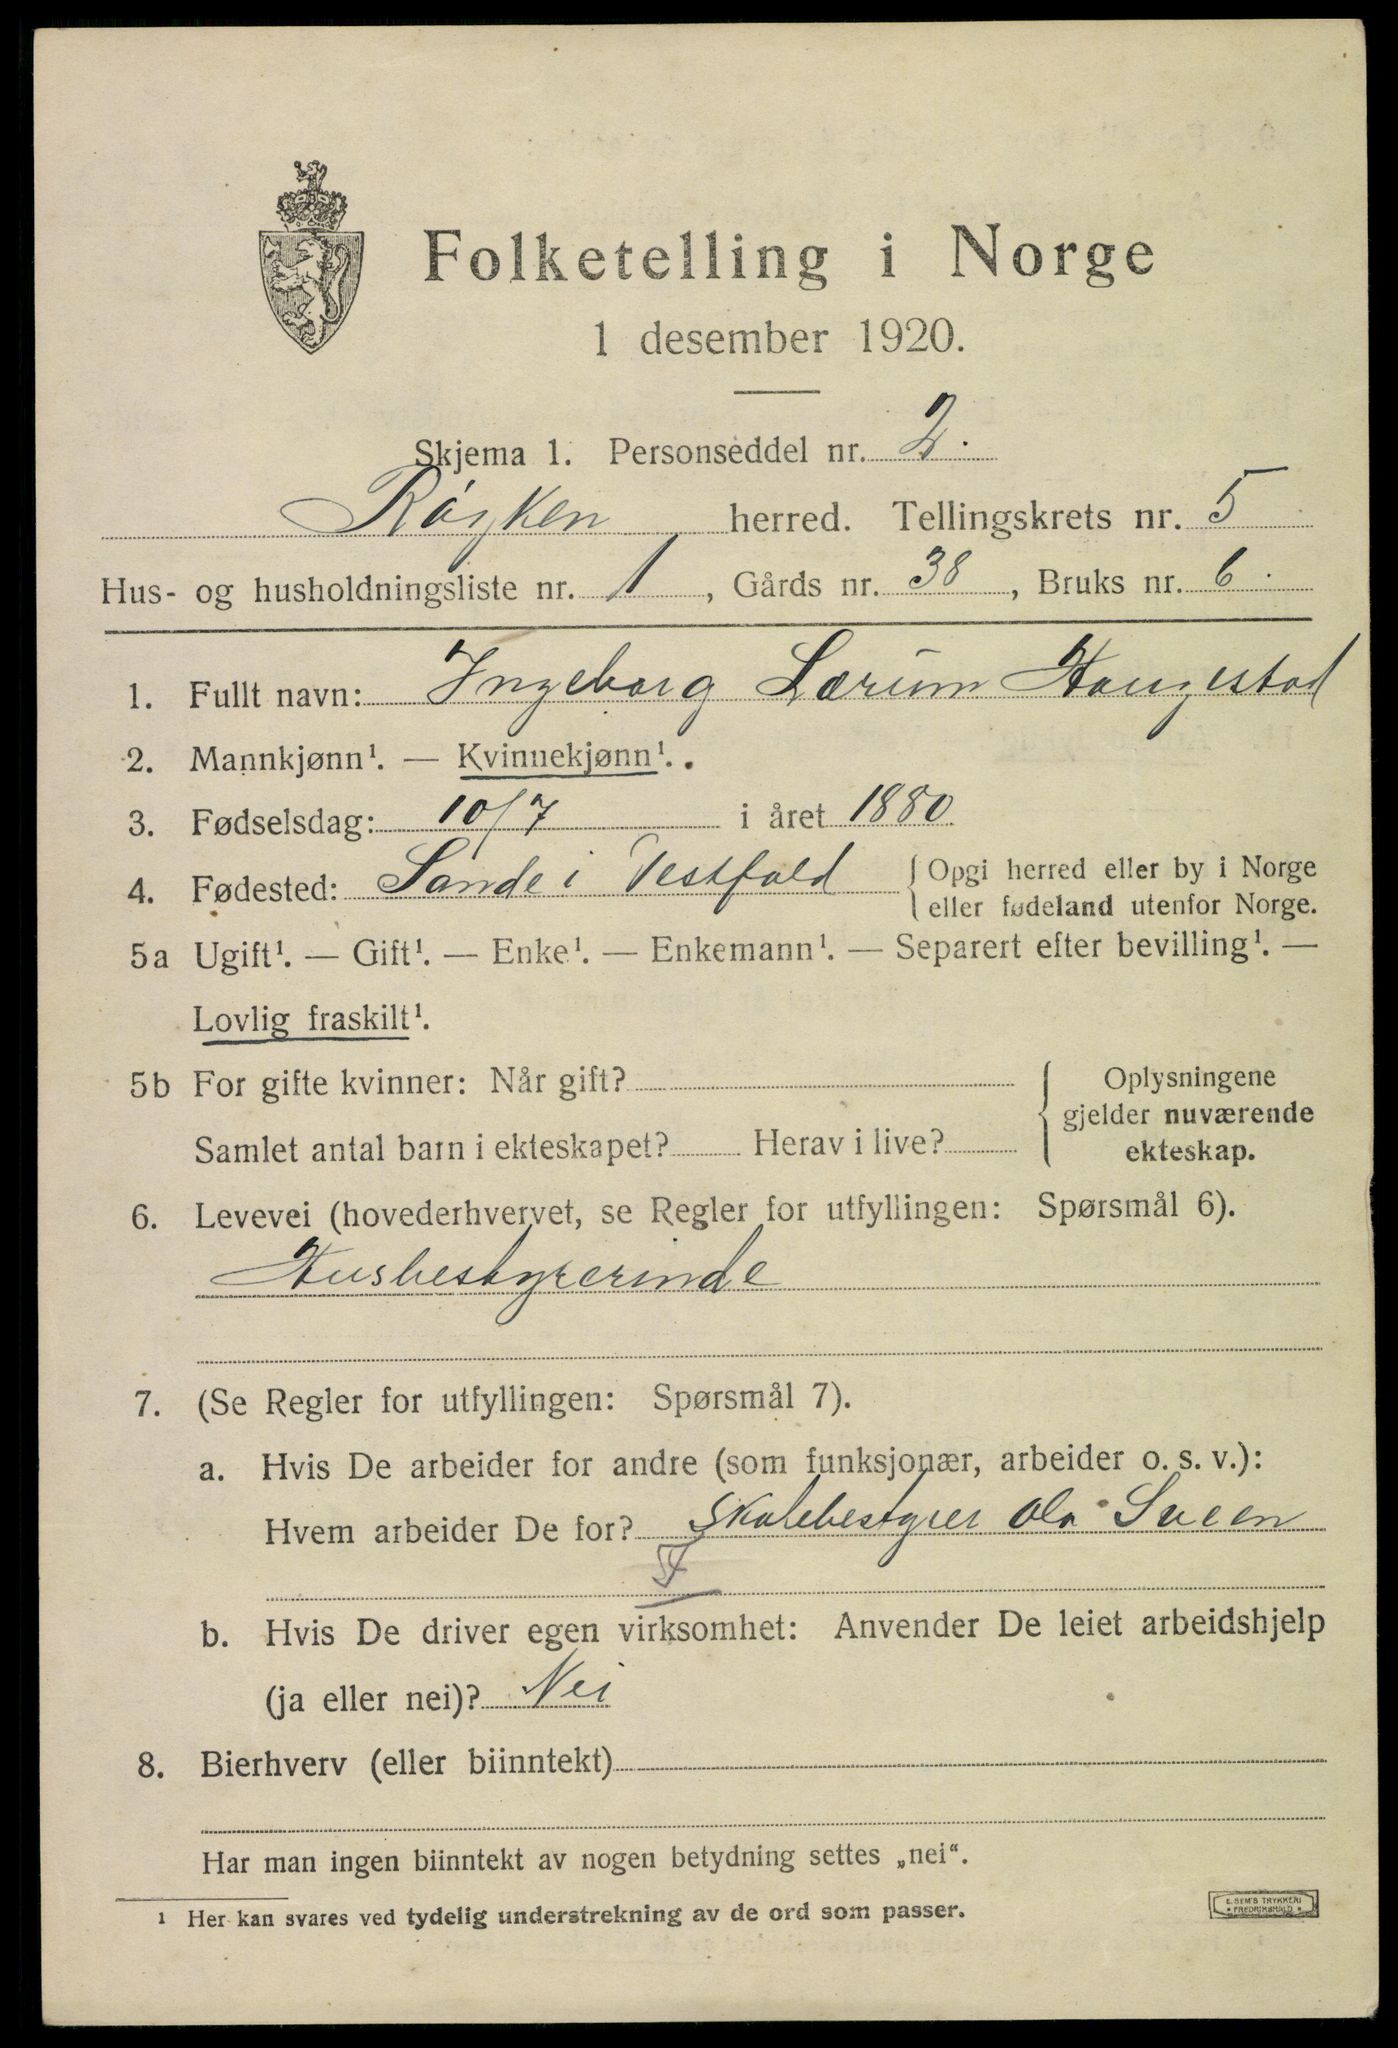 Folketelling i Norge
1 desember 1920.
Skjema 1. Personseddel nr. 2.
Røyken herred. Tellingskrets nr. 5
Hus- og husholdningsliste nr. 1, Gårds nr. 38, Bruks nr. 6.
1. Fullt navn: Ingeborg Lærum Haugestad
2. Mannkjønn¹. — Kvinnekjønn¹.
3. Fødselsdag: 10/7 i året 1880
4. Fødested: Sande i Vestfold { Opgi herred eller by i Norge
eller fødeland utenfor Norge.
5a Ugift¹. — Gift¹. — Enke¹. — Enkemann¹. — Separert efter bevilling¹. —
Lovlig fraskilt¹.
5b For gifte kvinner: Når gift? Oplysningene
gjelder nuværende
Samlet antal barn i ekteskapet? Herav i live? ekteskap.
6. Levevei (hovederhvervet, se Regler for utfyllingen: Spørsmål 6).
Husbestyrerinde
7. (Se Regler for utfyllingen: Spørsmål 7).
a. Hvis De arbeider for andre (som funksjonær, arbeider o. s. v.):
Hvem arbeider De for? Skolebestyrer Ola Sveen
b. Hvis De driver egen virksomhet: Anvender De leiet arbeidshjelp
(ja eller nei)? Nei
8. Bierhverv (eller biinntekt)
Har man ingen biinntekt av nogen betydning settes „nei“.
¹ Her kan svares ved tydelig understrekning av de ord som passer.
E. SEM'S TRYKKERI
FREDRIKSHALD